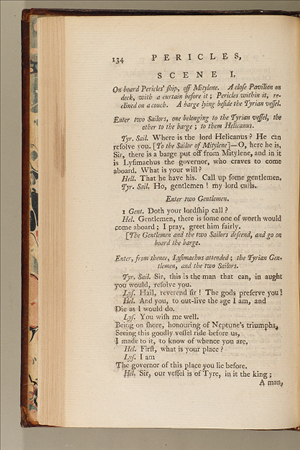 134 PERICLES,
SCENE I.
On board Pericles' ship, off Mitylene. A close Pavilion on
deck, with a curtain before it; Pericles within it, re-
clined on a couch. A barge lying beside the Tyrian vessel.
Enter two Sailors, one belonging to the Tyrian vessel, the
other to the barge; to them Helicanus.
Tyr. Sail. Where is the lord Helicanus? He can
resolve you. [To the Sailor of Mitylene]—O, here he is,
Sir, there is a barge put off from Mitylene, and in it
is Lysimachus the governor, who craves to come
aboard. What is your will?
Hell. That he have his. Call up some gentlemen.
Tyr. Sail. Ho, gentlemen! my lord calls.
Enter two Gentlemen.
1 Gent. Doth your lordship call?
Hel. Gentlemen, there is some one of worth would
come aboard; I pray, greet him fairly.
[The Gentlemen and the two Sailors descend, and go on
board the barge.
Enter, from thence, Lysimachus attended; the Tyrian Gen-
tlemen, and the two Sailors.
Tyr. Sail. Sir, this is the man that can, in aught
you would, resolve you.
Lys. Hail, reverend sir! The gods preserve you!
Hel. And you, to out-live the age I am, and
Die as I would do.
Lys. You wish me well.
Being on shore, honouring of Neptune's triumphs,
Seeing this goodly vessel ride before us,
I made to it, to know of whence you are.
Hel. First, what is your place?
Lys. I am
The governor of this place you lie before.
Hel. Sir, our vessel is of Tyre, in it the king;
A man,